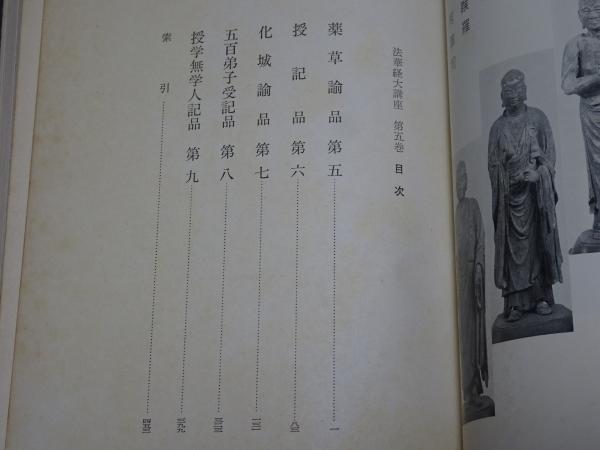 法華経大講座 第五巻 目次
薬草諭品 第五 一
授記品 第六 八三
化城諭品 第七 一三一
五百弟子受記品 第八
授学無学人記品 第九 三九九
索引 四五三